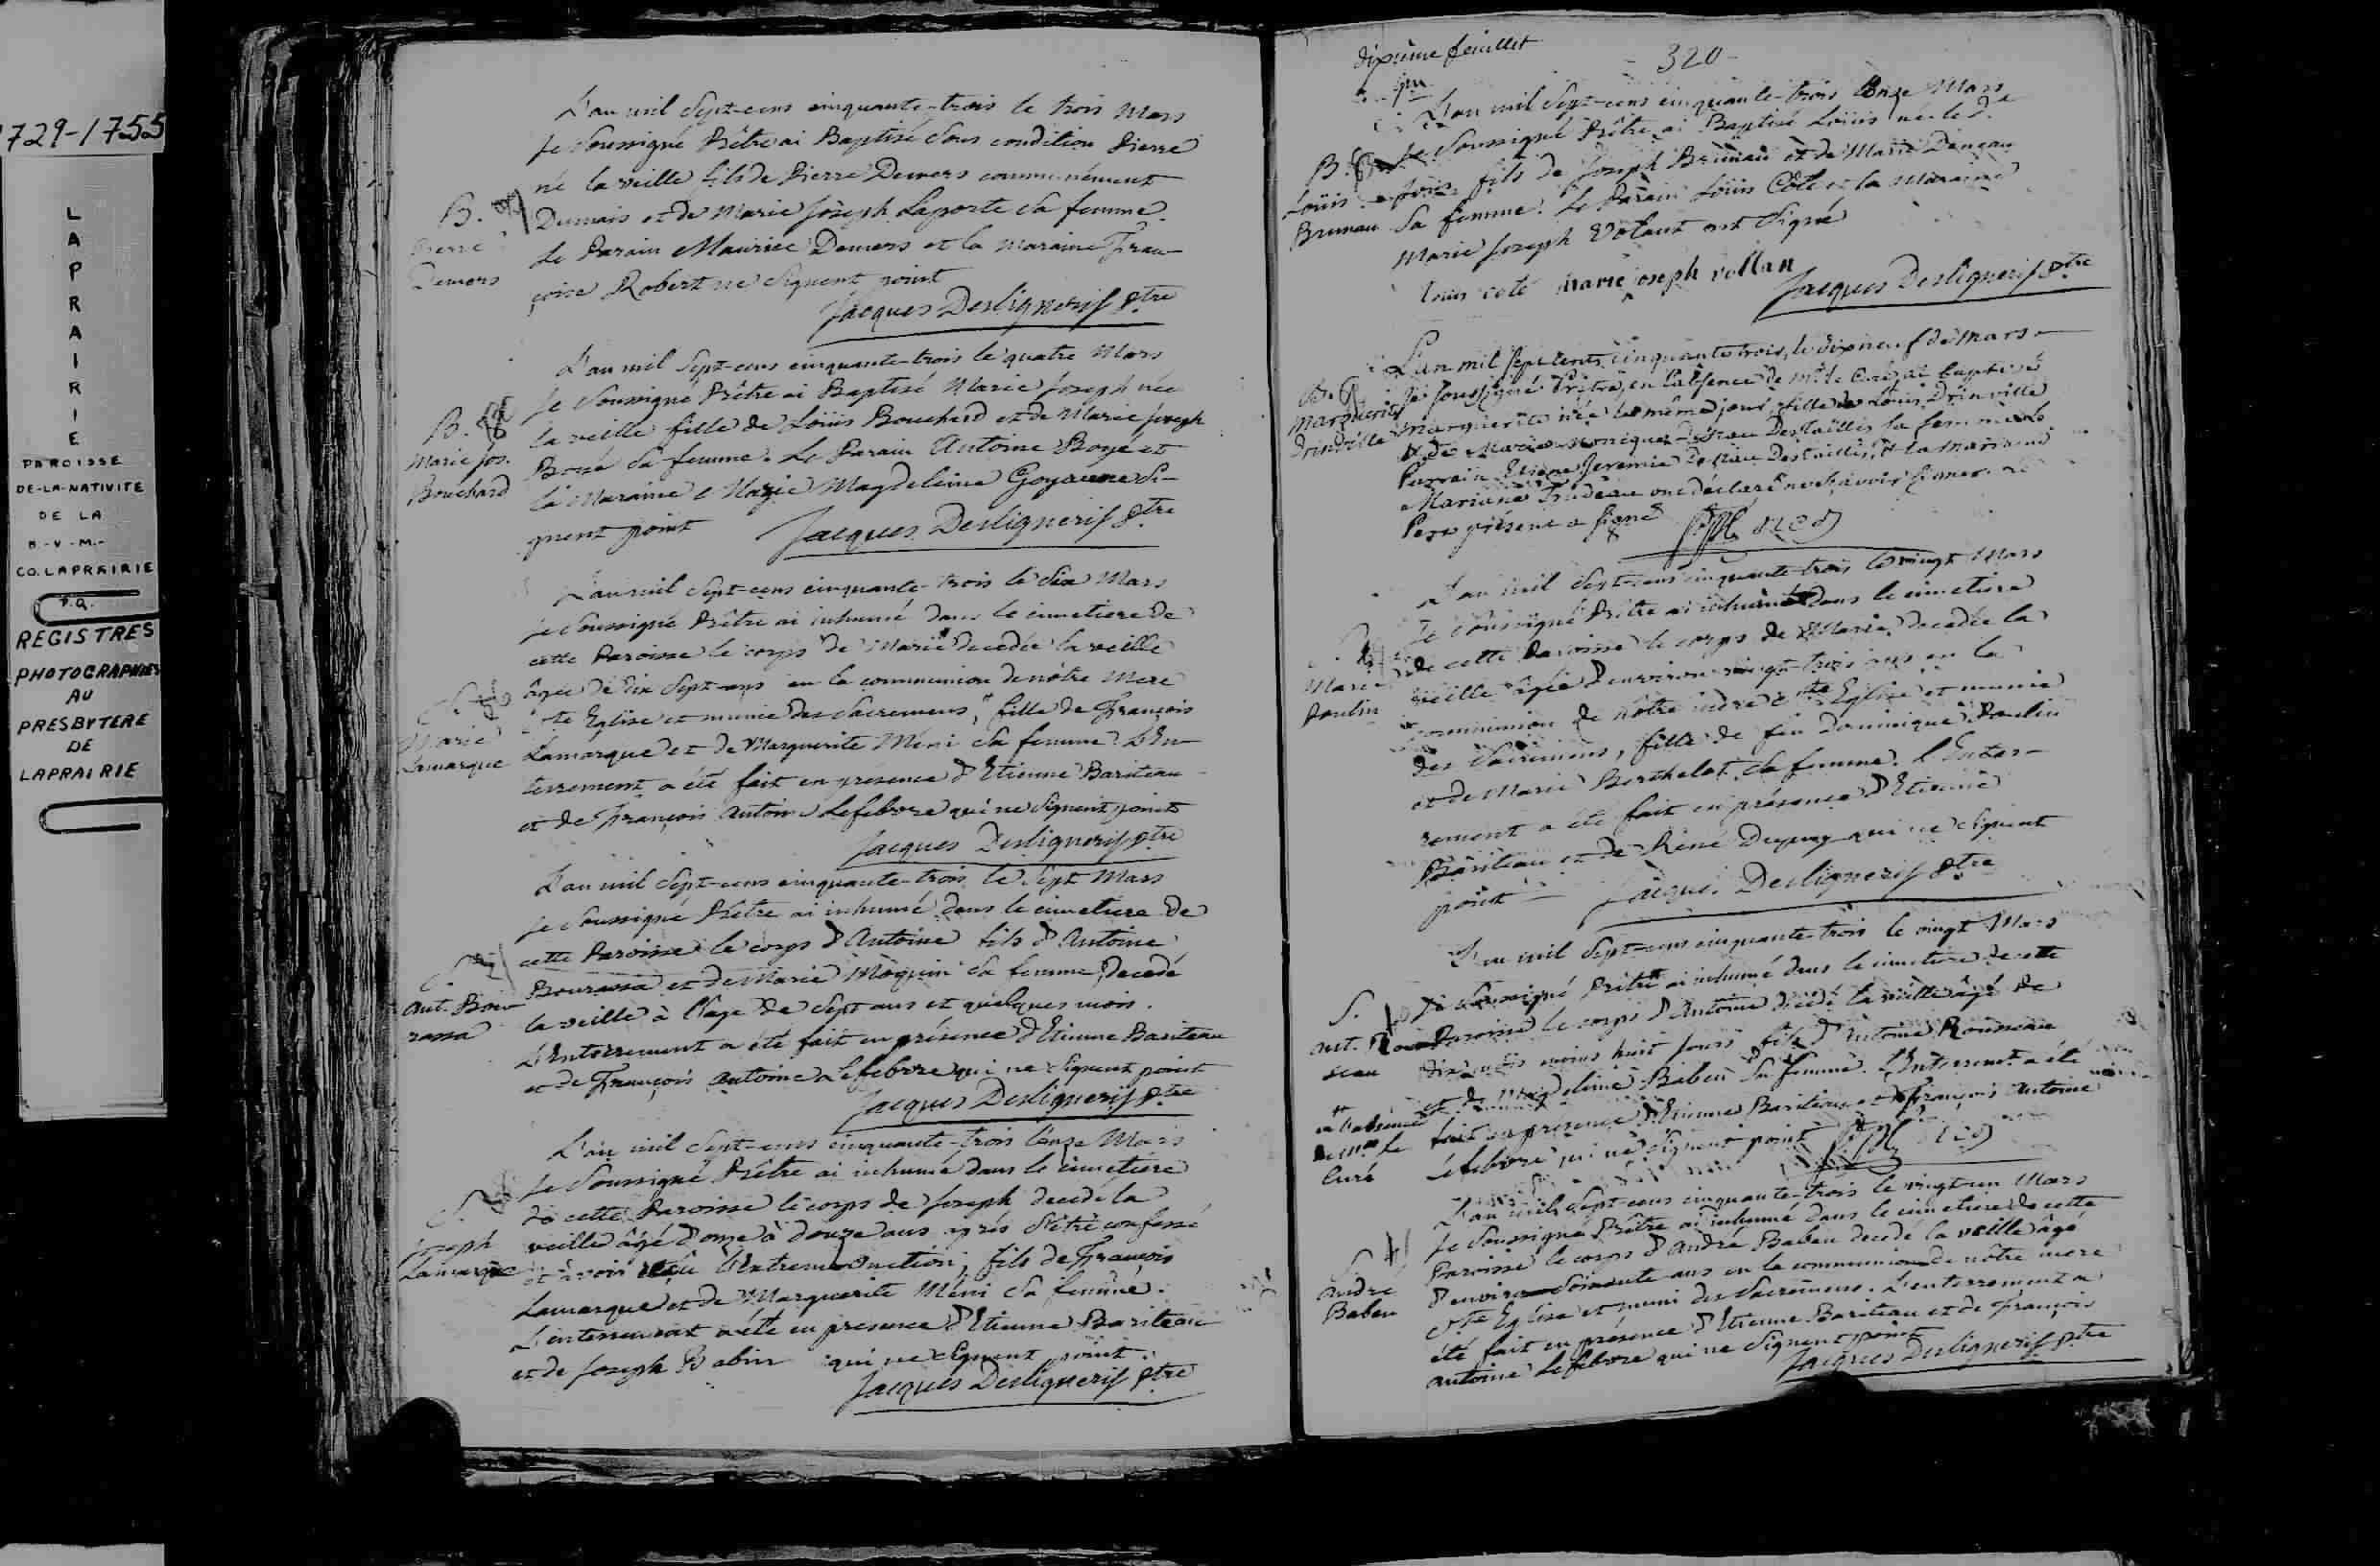 1729-1755
LAPRAIRIE
PAROISSE
DE-LA-NATIVITE
DE LA
B.-V-M.-
CO. LAPRAIRIE
P.Q.
REGISTRES
PHOTOGRAPHIES
AU
PRESBYTERE
DE
LAPRAIRIE
L'an mil Sept-cens cinquante-trois le trois Mars
Je Soussigné Prêtre ai Baptisé Sous condition Pierre
né la veille fils de Pierre Demers communément
B.
Pierre
Demers
Dumais et de Marie Joseph Laporte Sa femme.
Le Parain Maurice Demers et la Maraine Fran-
çoise Robert ne Signent point
Jacques Desligneris ptre
L'an mil Sept-cens cinquante-trois le quatre Mars
Je Soussigné Prêtre ai Baptisé Marie Joseph née
B.
Marie Jos.
Bouchard
la veille fille de Loüis Bouchard et de Marie Joseph
Boyé Sa femme. Le Parain Antoine Boyé et
la Maraine Marie Magdeleine Goyau ne Si-
gnent point
Jacques Desligneris ptre
L'an mil Sept-cens cinquante-trois le Six Mars
Je Soussigné Prêtre ai inhumé dans le cimetiere de
cette Paroisse le corps de Marie decedée la veille
âgée de dix Sept-ans en la communion de nôtre Mere
S.
Marie
Lamarque
Ste Eglise et munie des Sacremens, fille de François
Lamarque et de Marguerite Méni Sa femme. L'En-
terrement a été fait en presence d'Etienne Bariteau
et de François Antoine Lefebvre qui ne Signent point
Jacques Desligneris ptre
L'an mil Sept-cens cinquante-trois le Sept Mars
Je Soussigné Prêtre ai inhumé dans le cimetiere de
cette Paroisse le corps d'Antoine fils d'Antoine
S.
Ant. Bou-
rassa
Bourassa et de Marie Moquin Sa femme, decedé
la veille à l'age de Sept ans et quelques mois.
L'Enterrement a été fait en présence d'Etienne Bariteau
et de François Antoine Lefebvre qui ne Signent point
Jacques Desligneris ptre
L'an mil Sept-cens cinquante-trois l'onze Mars
Je Soussigné Prêtre ai inhumé dans le cimetiere
de cette Paroisse le corps de Joseph decedé la
veille âgé d'onze à douze ans après S'être confessé
S.
Joseph
Lamarque
et avoir reçû l'Extreme-onction, fils de François
Lamarque et de Marguerite Méni Sa femme.
L'enterrement a été en presence d'Etienne Bariteau
et de Joseph Babin qui ne Signent point.
Jacques Desligneris ptre
dixième feuillet
- 320 -
L'an mil Sept-cens cinquante-trois onze Mars
Je Soussigné Prêtre ai Baptisé Loüis né le d.
B.
Loüis
Bruneau
jour fils de Joseph Bruneau et de Marie Deneau
Sa femme. Le Parain Loüis Côté et la Maraine
Marie Joseph Volant ont Signé
Louis coté Marie joseph vollan
Jacques Desligneris ptre
L'an mil sept cents cinquante trois, le dix neuf de mars
B.
Marguerite
Drinville
Je soussigné Prêtre, en l'absence de Mr. le Curé, ai baptisé
Marguerite née le même jour, fille de Louis Drinville
et de Marie Monique Destaillis sa femme. Le
Parrain Jeremie Destaillis, et la Marraine
Mariane Trudeau ont déclaré ne sçavoir signer
Pere présent a signé
L'an mil Sept-cens cinquante-trois le vingt Mars
Je Soussigné Prêtre ai inhumé dans le cimetiere
S.
Marie
Poulin
de cette Paroisse le corps de Marie decedée la
veille âgée d'environ vingt-trois ans en la
communion de nôtre mere Ste Eglise et munie
des Sacremens, fille de feu Dominique Poulin
et de Marie Berthelot Sa femme. L'Enter-
rement a été fait en présence d'Etienne
Bariteau et de Réné Dupuy qui ne Signent
point
Jacques Desligneris ptre
L'an mil Sept-cens cinquante-trois le vingt Mars
Je Soussigné Prêtre ai inhumé dans le cimetiere de cette
S.
Ant. Rous-
seau
Paroisse le corps d'Antoine decedé la veille âgé de
dix mois moins huit jours fils d'Antoine Rousseau
et de Magdeleine Babeu Sa femme. L'Enterremt a été
en l'absence
de Mr. le
Curé
fait en presence d'Etienne Bariteau et François Antoine
Lefebvre qui ne Signent point
L'an mil Sept-cens cinquante-trois le vingt-un Mars
Je Soussigné Prêtre ai inhumé dans le cimetiere de cette
S.
André
Babeu
Paroisse le corps d'André Babeu decedé la veille âgé
d'environ Soixante ans en la communion de nôtre mere
Ste Eglise et muni des Sacremens. L'enterrement a
été fait en présence d'Etienne Bariteau et de François
Antoine Lefebvre qui ne Signent point
Jacques Desligneris ptre